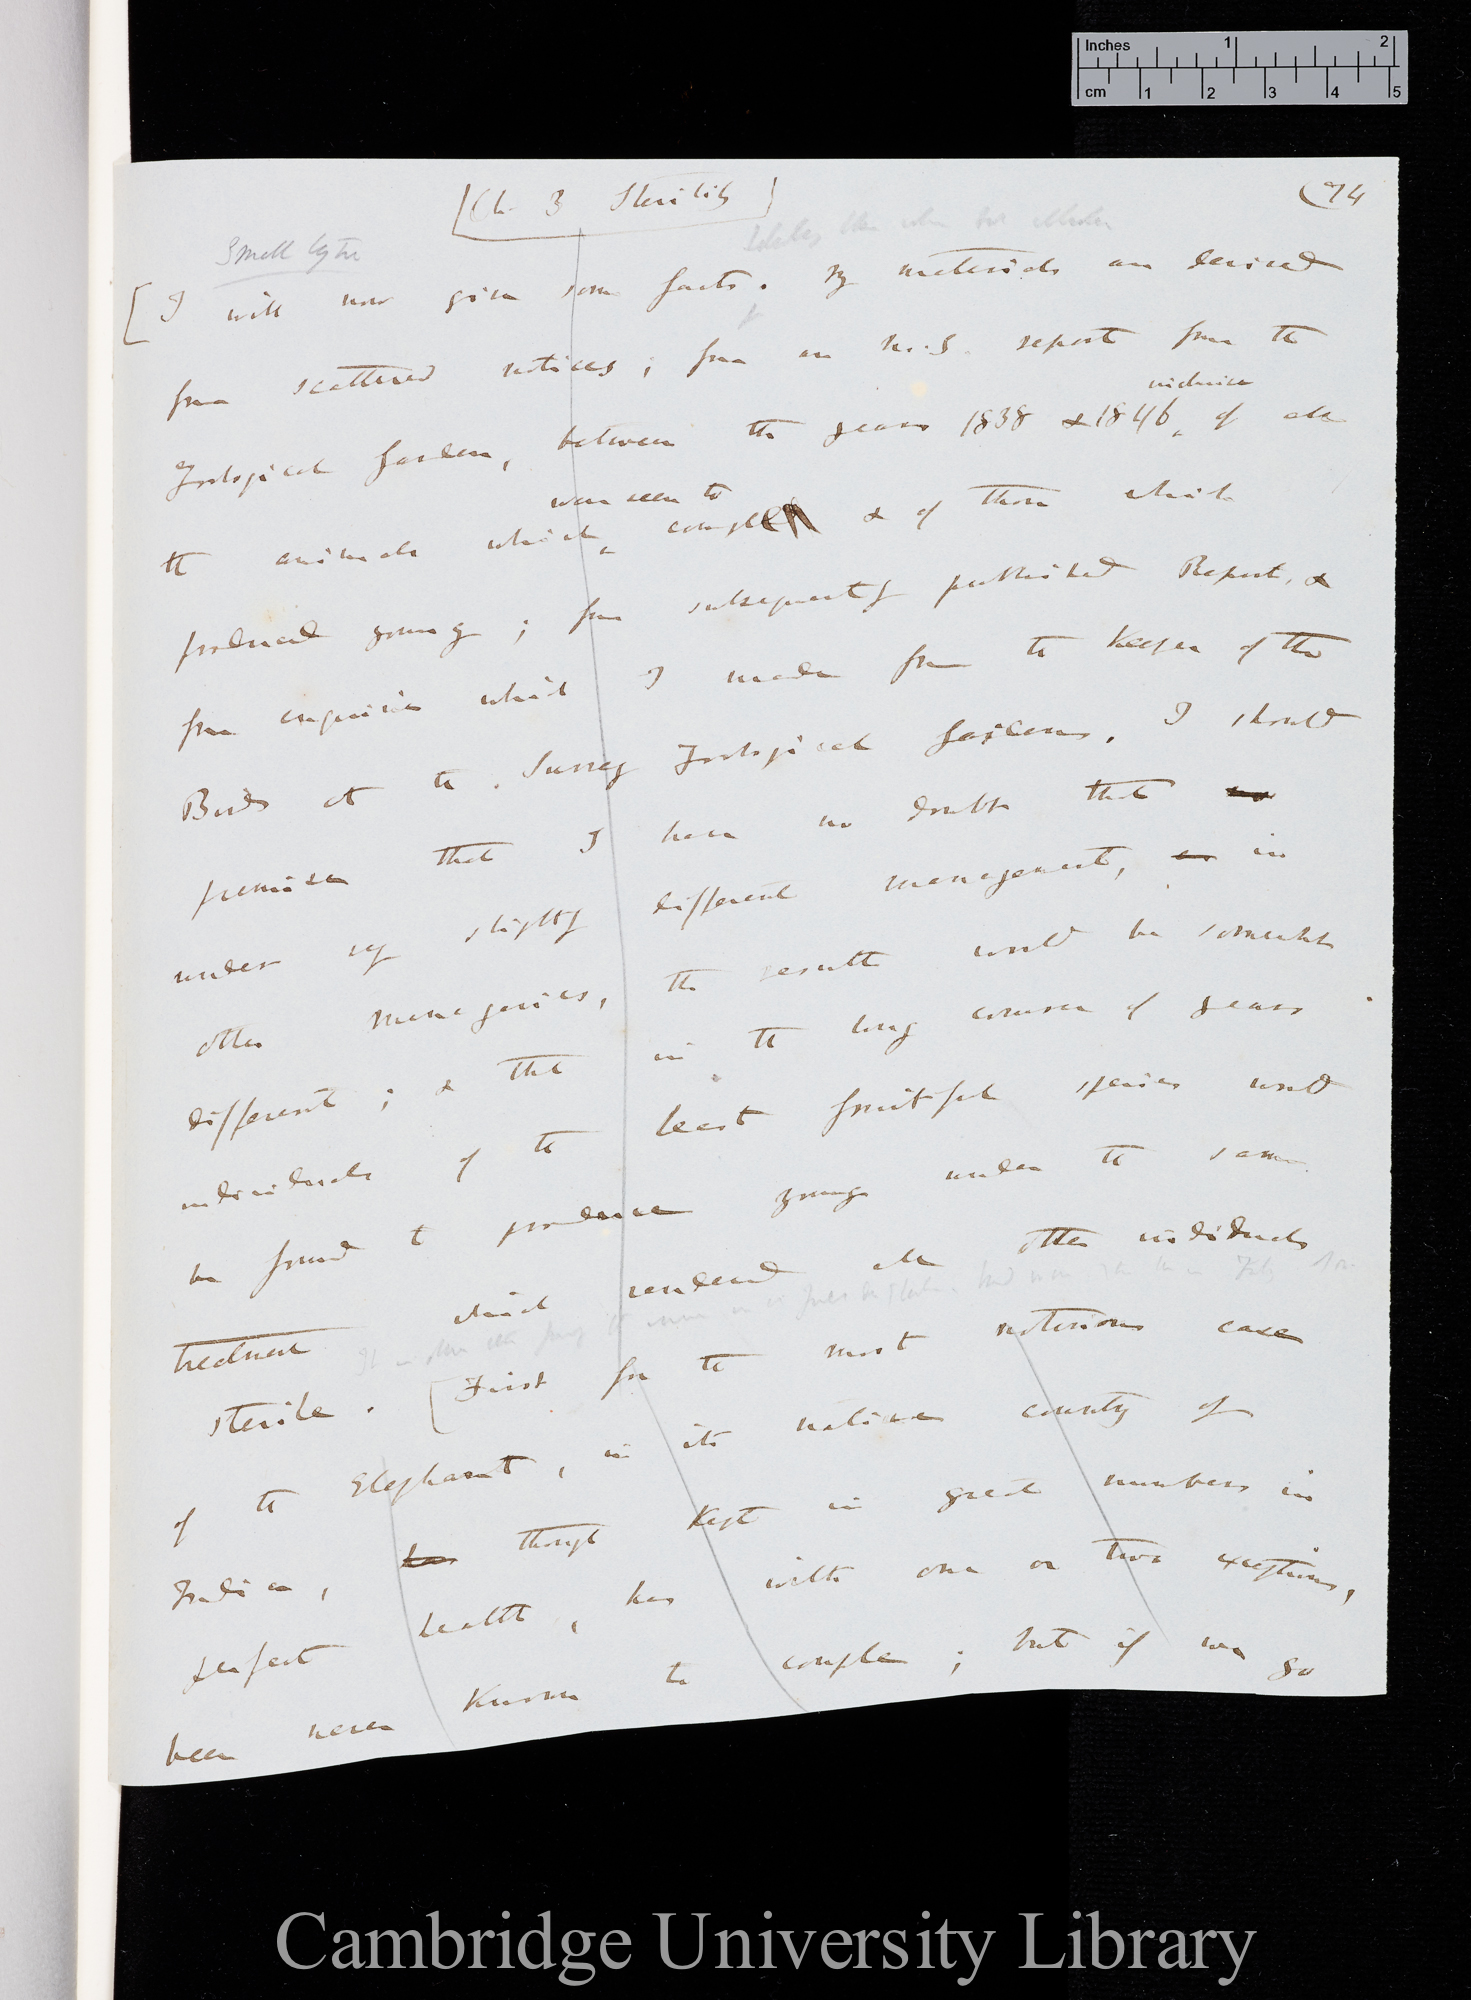 Inches 1 2
cm 1 2 3 4 5
[Ch. 3 Sterility]
(74
Small type
[I will now give some facts. My materials are derived
from scattered notices; from an M.S. report from the
inclusive
Zoological Garden, between the years 1838 & 1846, of all
were seen to
the animals which couple & of those which
produced young; from subsequently published Report, &
from enquiries which I made from the Keeper of the
Birds at the Surrey Zoological Gardens. I should
premise that I have no doubt that
under very slightly different management, in
other menageries, the results would be somewhat
different; & that in the long course of years
individuals of the least fruitful species would
be found to produce young under the same
treatment which rendered all other individuals
sterile. [First for the most notorious case
of the Elephant, in its native country of
India, though kept in great numbers in
perfect health, has with one or two exceptions,
been never known to couple; but if we go
Cambridge University Library